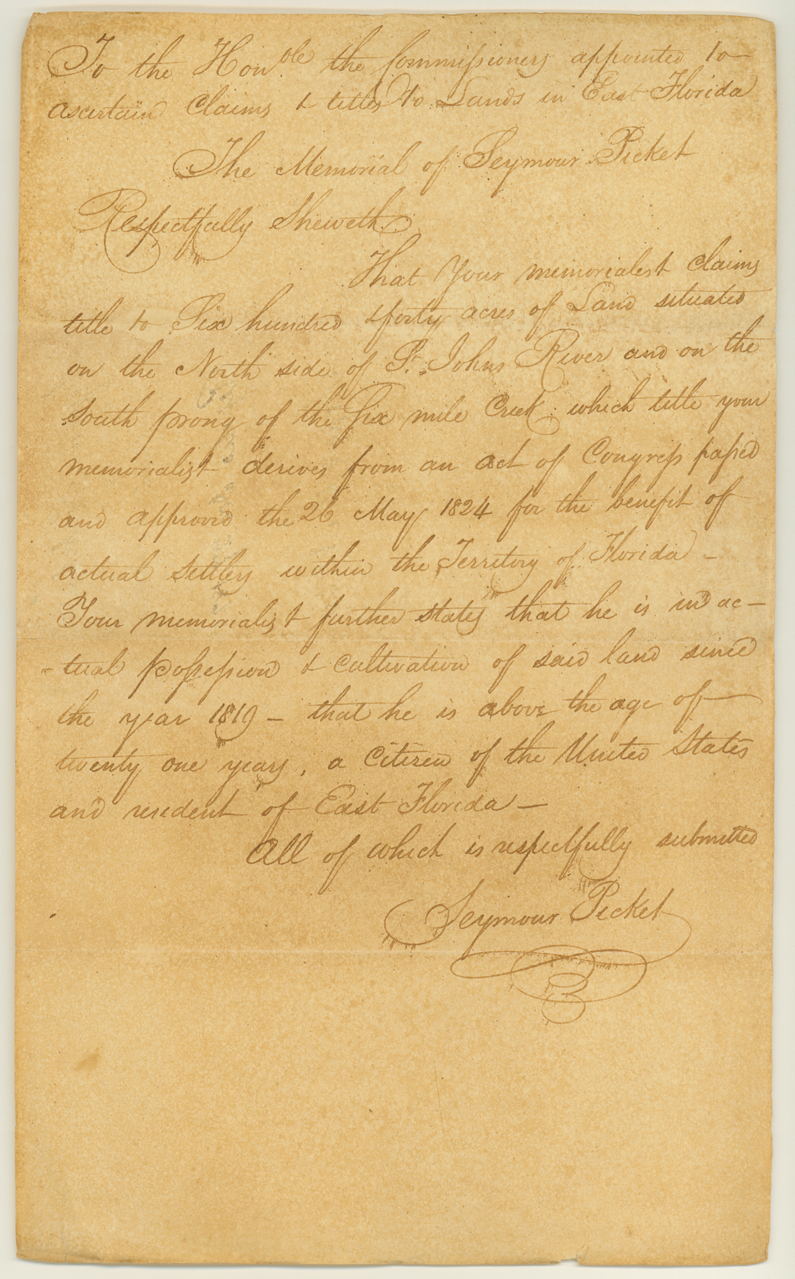 To the Hon^ble the Commissioners appointed to
ascertain Claims & titles to Lands in East Florida
The Memorial of Seymour Picket
Respectfully Sheweth
That Your memorialest claims
title to Six hundred & forty acres of Land situated
on the North side of St. Johns River and on the
South prong of the Six mile Creek which title your
memorialist derives from an act of Congress passed
and approved the 26 May 1824 for the benefit of
actual settlers within the Territory of Florida –
Your memorialist further states that he is in ac-
-tual possession & cultivation of said land since
the year 1819 – that he is above the age of
twenty one years, a Citizen of the United States
and resident of East Florida –
All of which is respectfully submitted
Seymour Picket